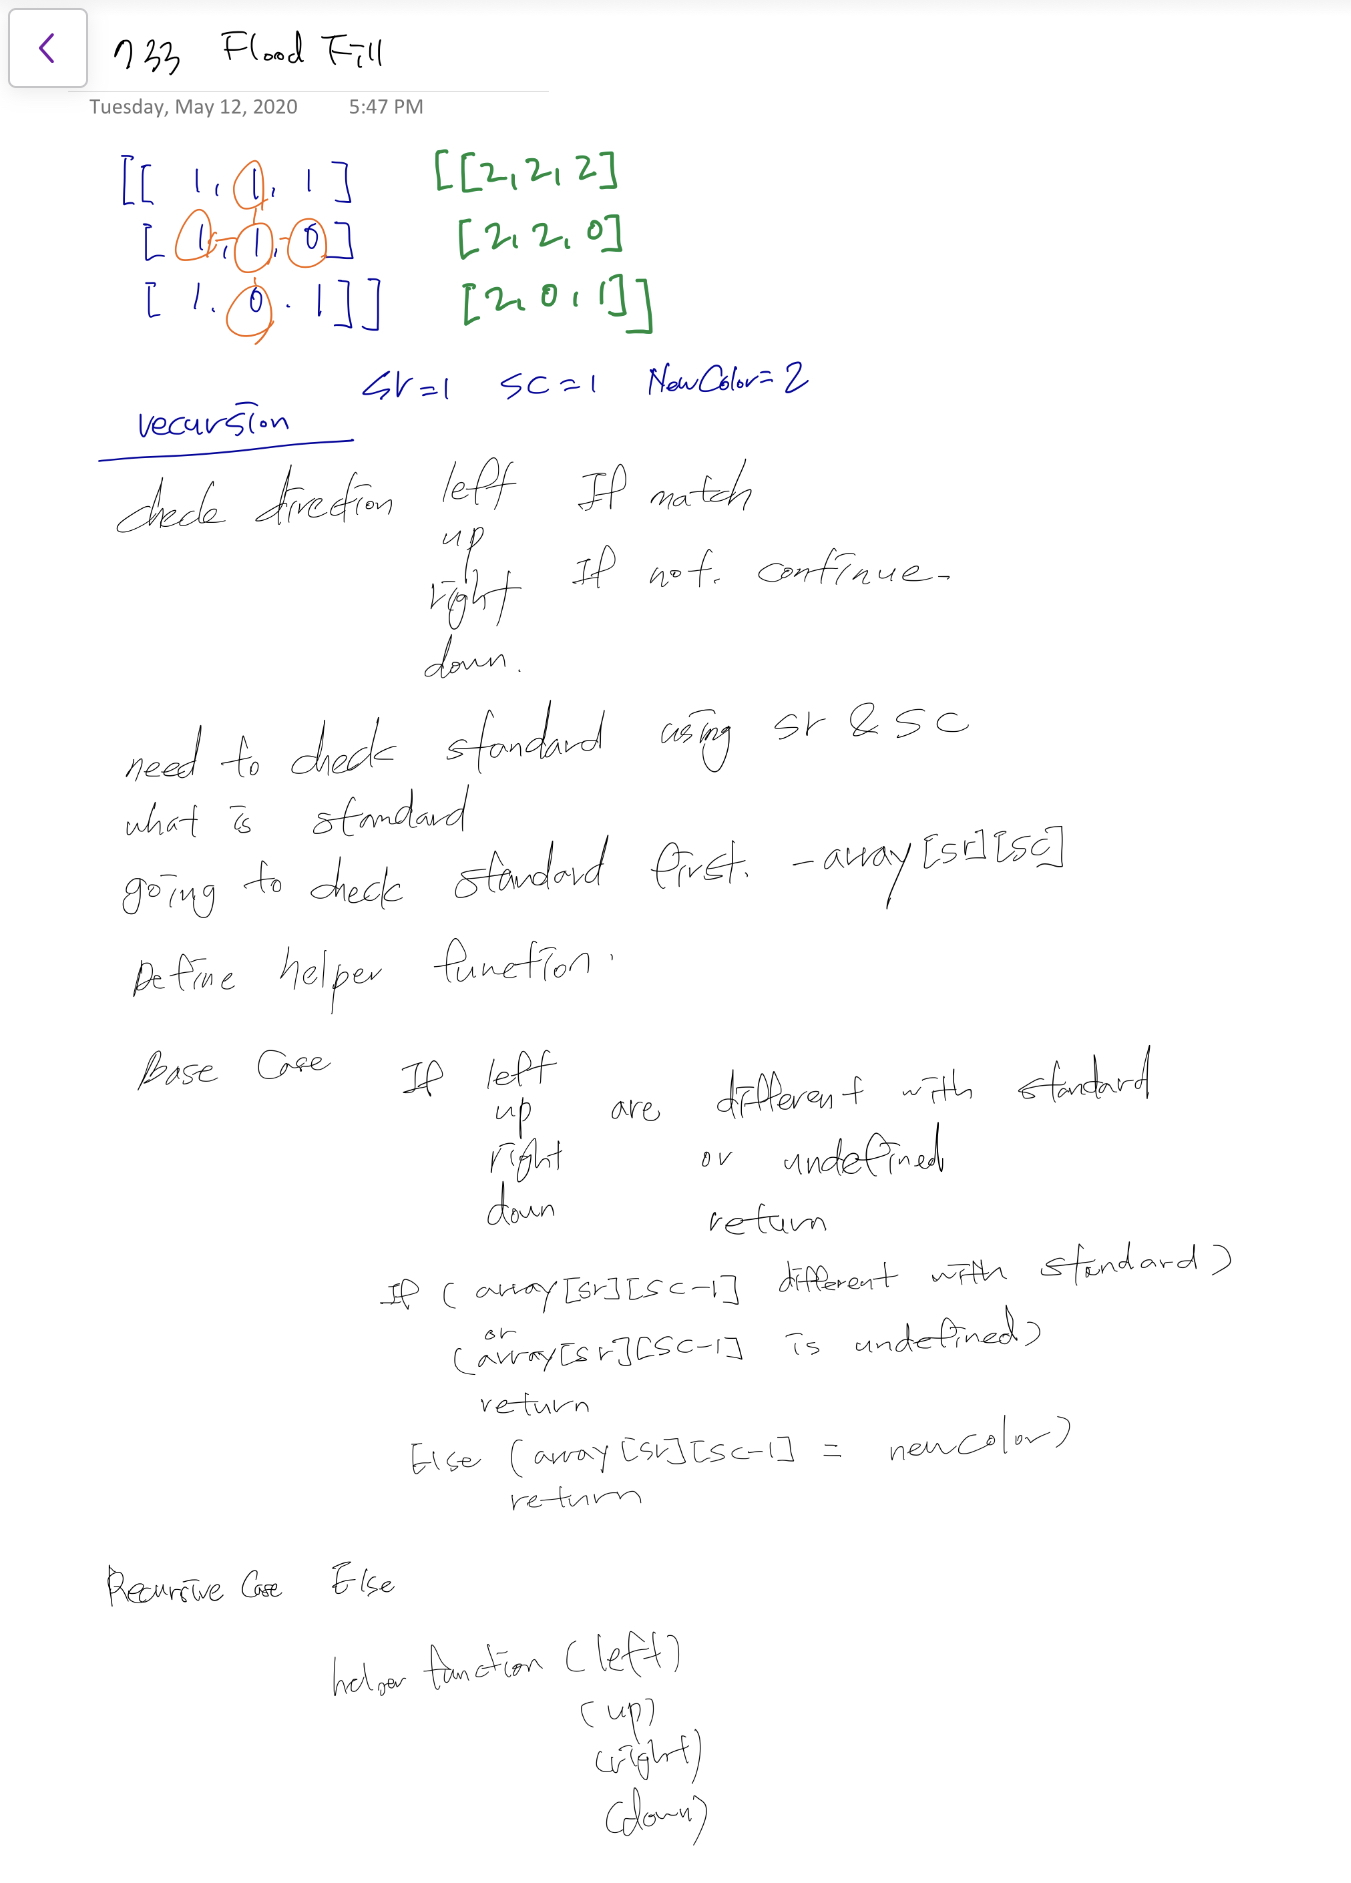 733 Flood Fill
Tuesday, May 12, 2020 5:47 PM
[[ 1, 1, 1 ] [[2, 2, 2]
[ 1, 1, 0 ] [2, 2, 0]
[ 1, 0, 1 ]] [2, 0, 1]]
sr=1 sc=1 NewColor=2
recursion
check direction left If match
up
right If not. continue.
down.
need to check standard using sr & sc
what is standard
going to check standard first. - array[sr][sc]
Define helper function.
Base Case If left
up are different with standard
right or undefined
down return
If ( array[sr][sc-1] different with standard)
or
(array[sr][sc-1] is undefined)
return
Else (array[sr][sc-1] = newcolor)
return
Recursive Case Else
helper function (left)
(up)
(right)
(down)